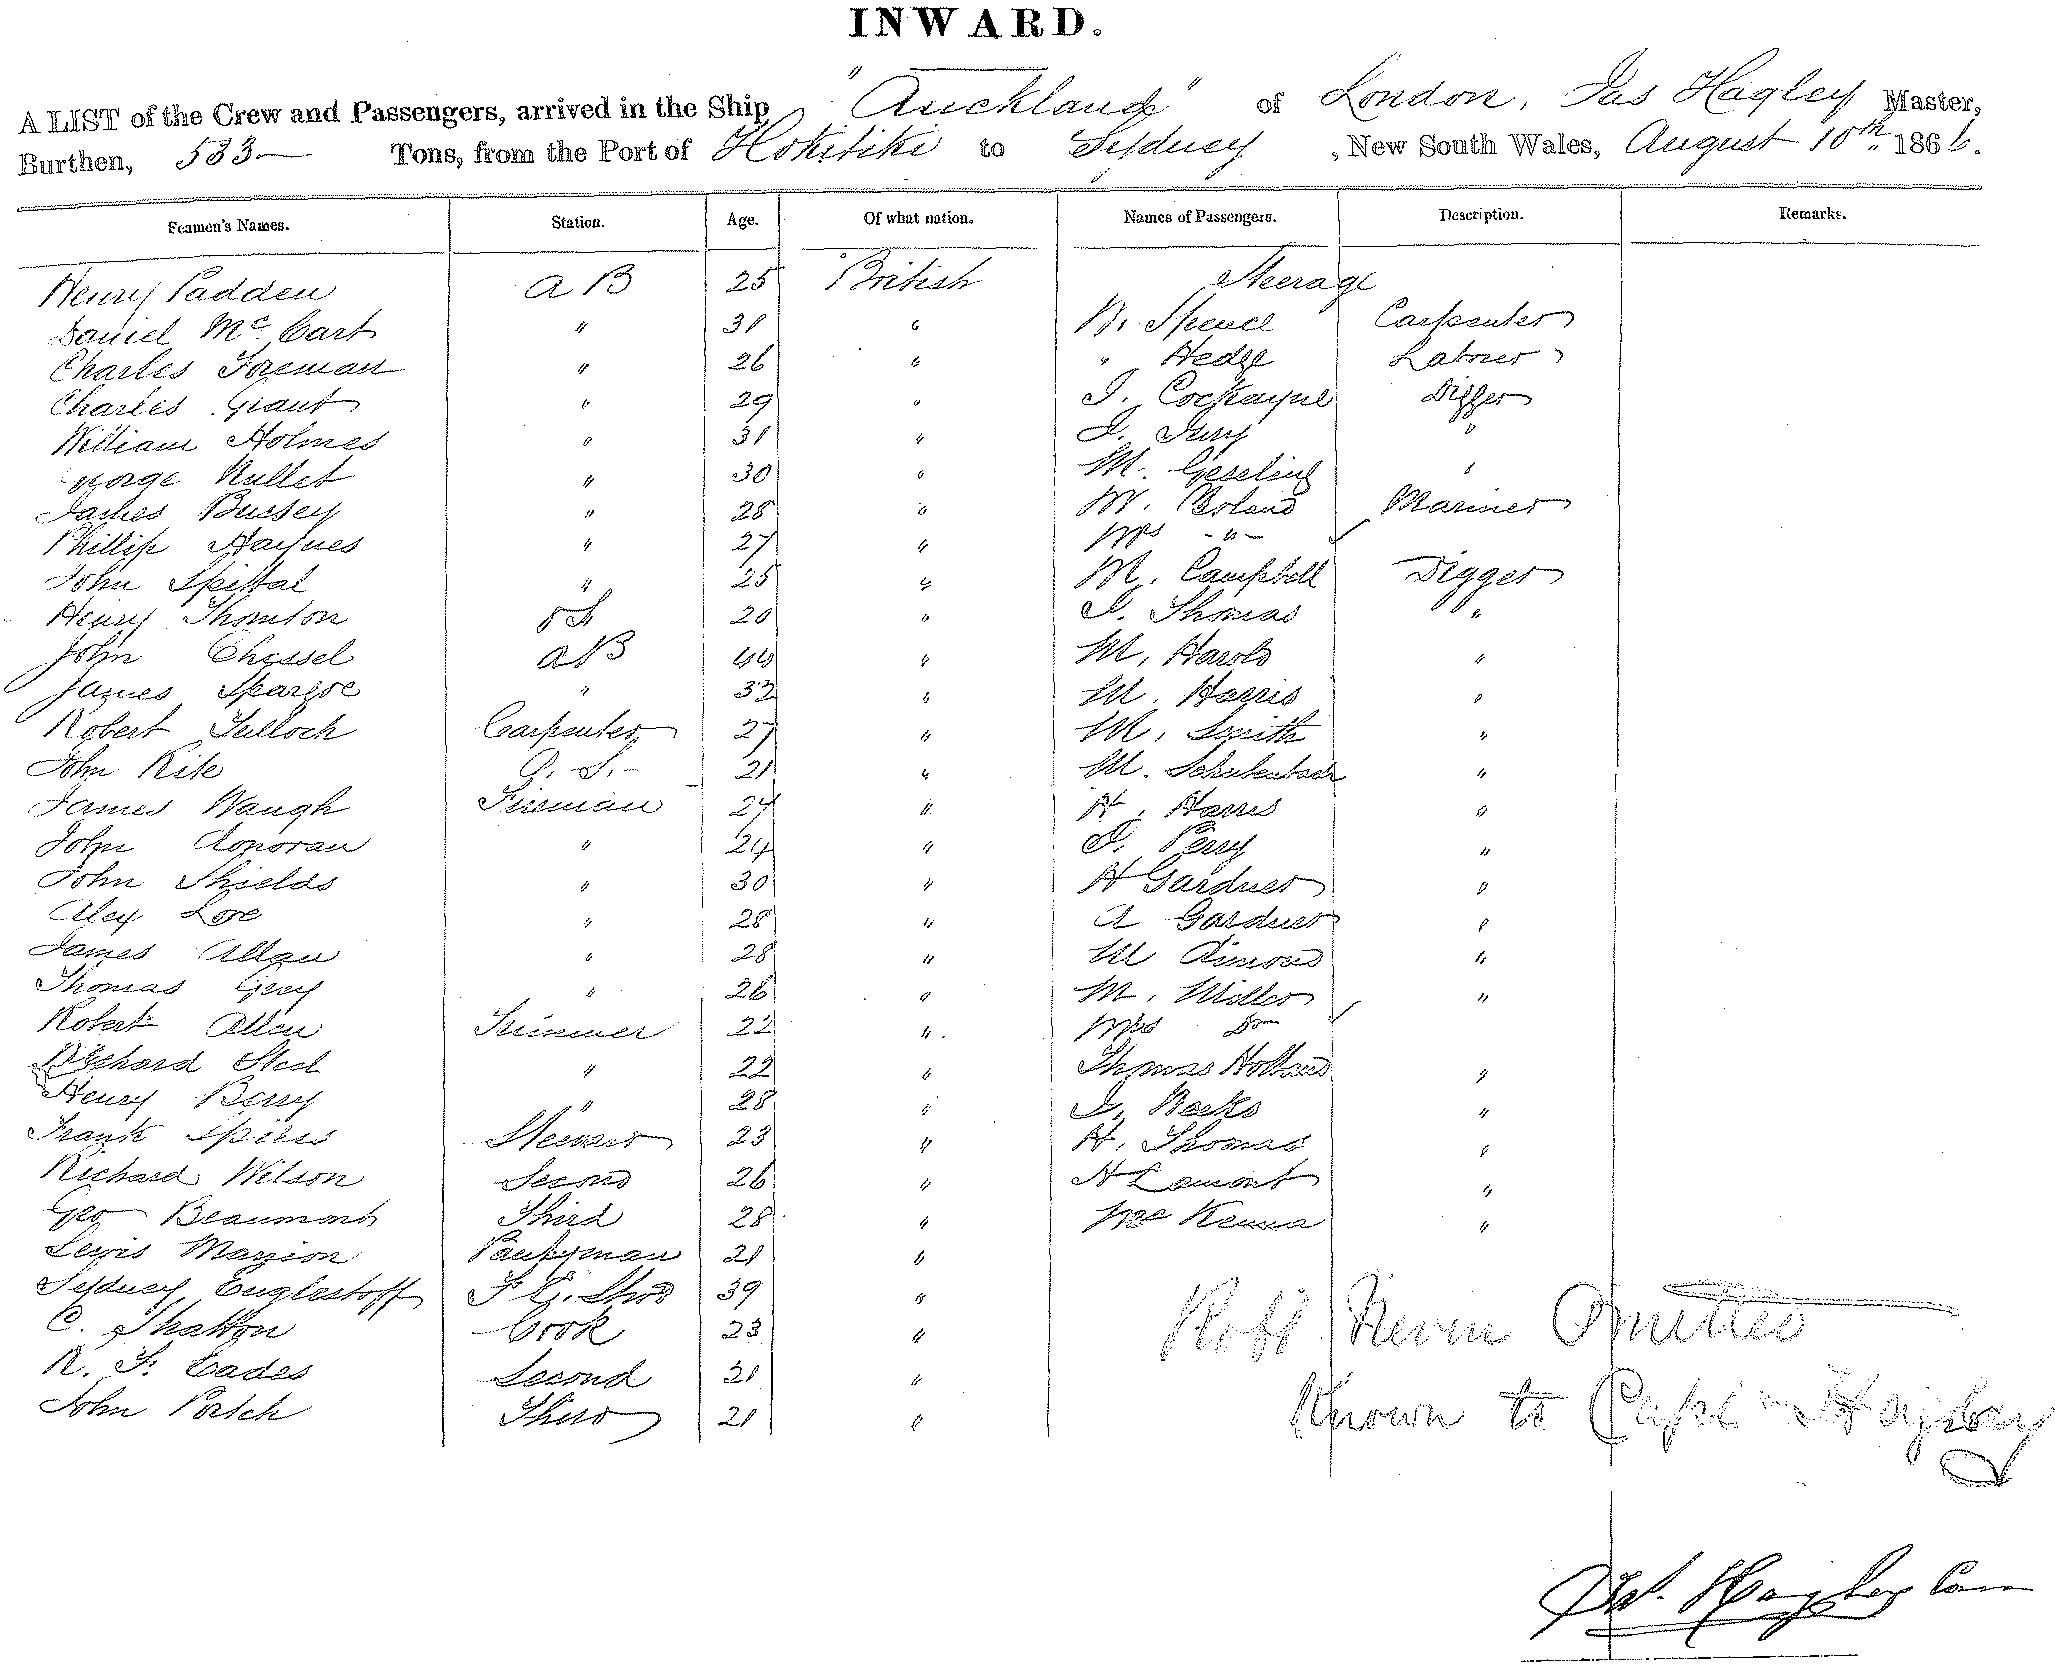 INWARD.
A LIST of the Crew and Passengers, arrived in the Ship "Auckland" of London, Jas Hagley Master,
Burthen, 533 Tons, from the Port of Hokitiki to Sydney, New South Wales, August 10th 1866.
Seamen's Names. Station. Age. Of what nation. Names of Passengers. Description. Remarks.
Henry Padden A B 25 British Steerage
Daniel McCart " 31 " B. Spence Carpenter
Charles Foreman " 26 " " Hedge Labrer
Charles Grant " 29 " I. Cockayne Digger
William Holmes " 31 " I. "
George Nullet " 30 " M. "
James Bussey " 28 " M. Boland Mariner
Phillip Haynes " 27 " Mrs - " -
John Spittal " 25 " M. Campbell Digger
Henry Thornton 20 " I. Thomas "
John Chessel AB 44 " M. Harold "
James Spargoe " 32 " M. Harris "
Robert Tulloch Carpenter 27 " M. Smith "
John Kite O. S. - 21 " M. "
James Waugh Fireman 27 " H. Harris "
John Donovan " 24 " I. Perry "
John Shields " 30 " H Gardner "
Alex Love " 28 " A Gardner "
James Allan " 28 " M "
Thomas Grey " 26 " M. Möller "
Robert Allen Trimmer 22 " Mrs Do
Richard Steel " 22 " Thomas Holland "
Henry Berry " 28 " I. Beeks "
Frank Spiers Steward 23 " H. Thomas "
Richard Wilson Second 26 " H Lamont "
Geo Beaumont Third 28 " McKenna "
Lewis Marrion Pantryman 21 "
Sydney Euglestoff 39 "
C. Shatton Cook 23 " Robt Nevin Omitted
R. J. Eades Second 21 "
John Portch Third 21 " Known to Capt Hagley
Jas. Hagley Com